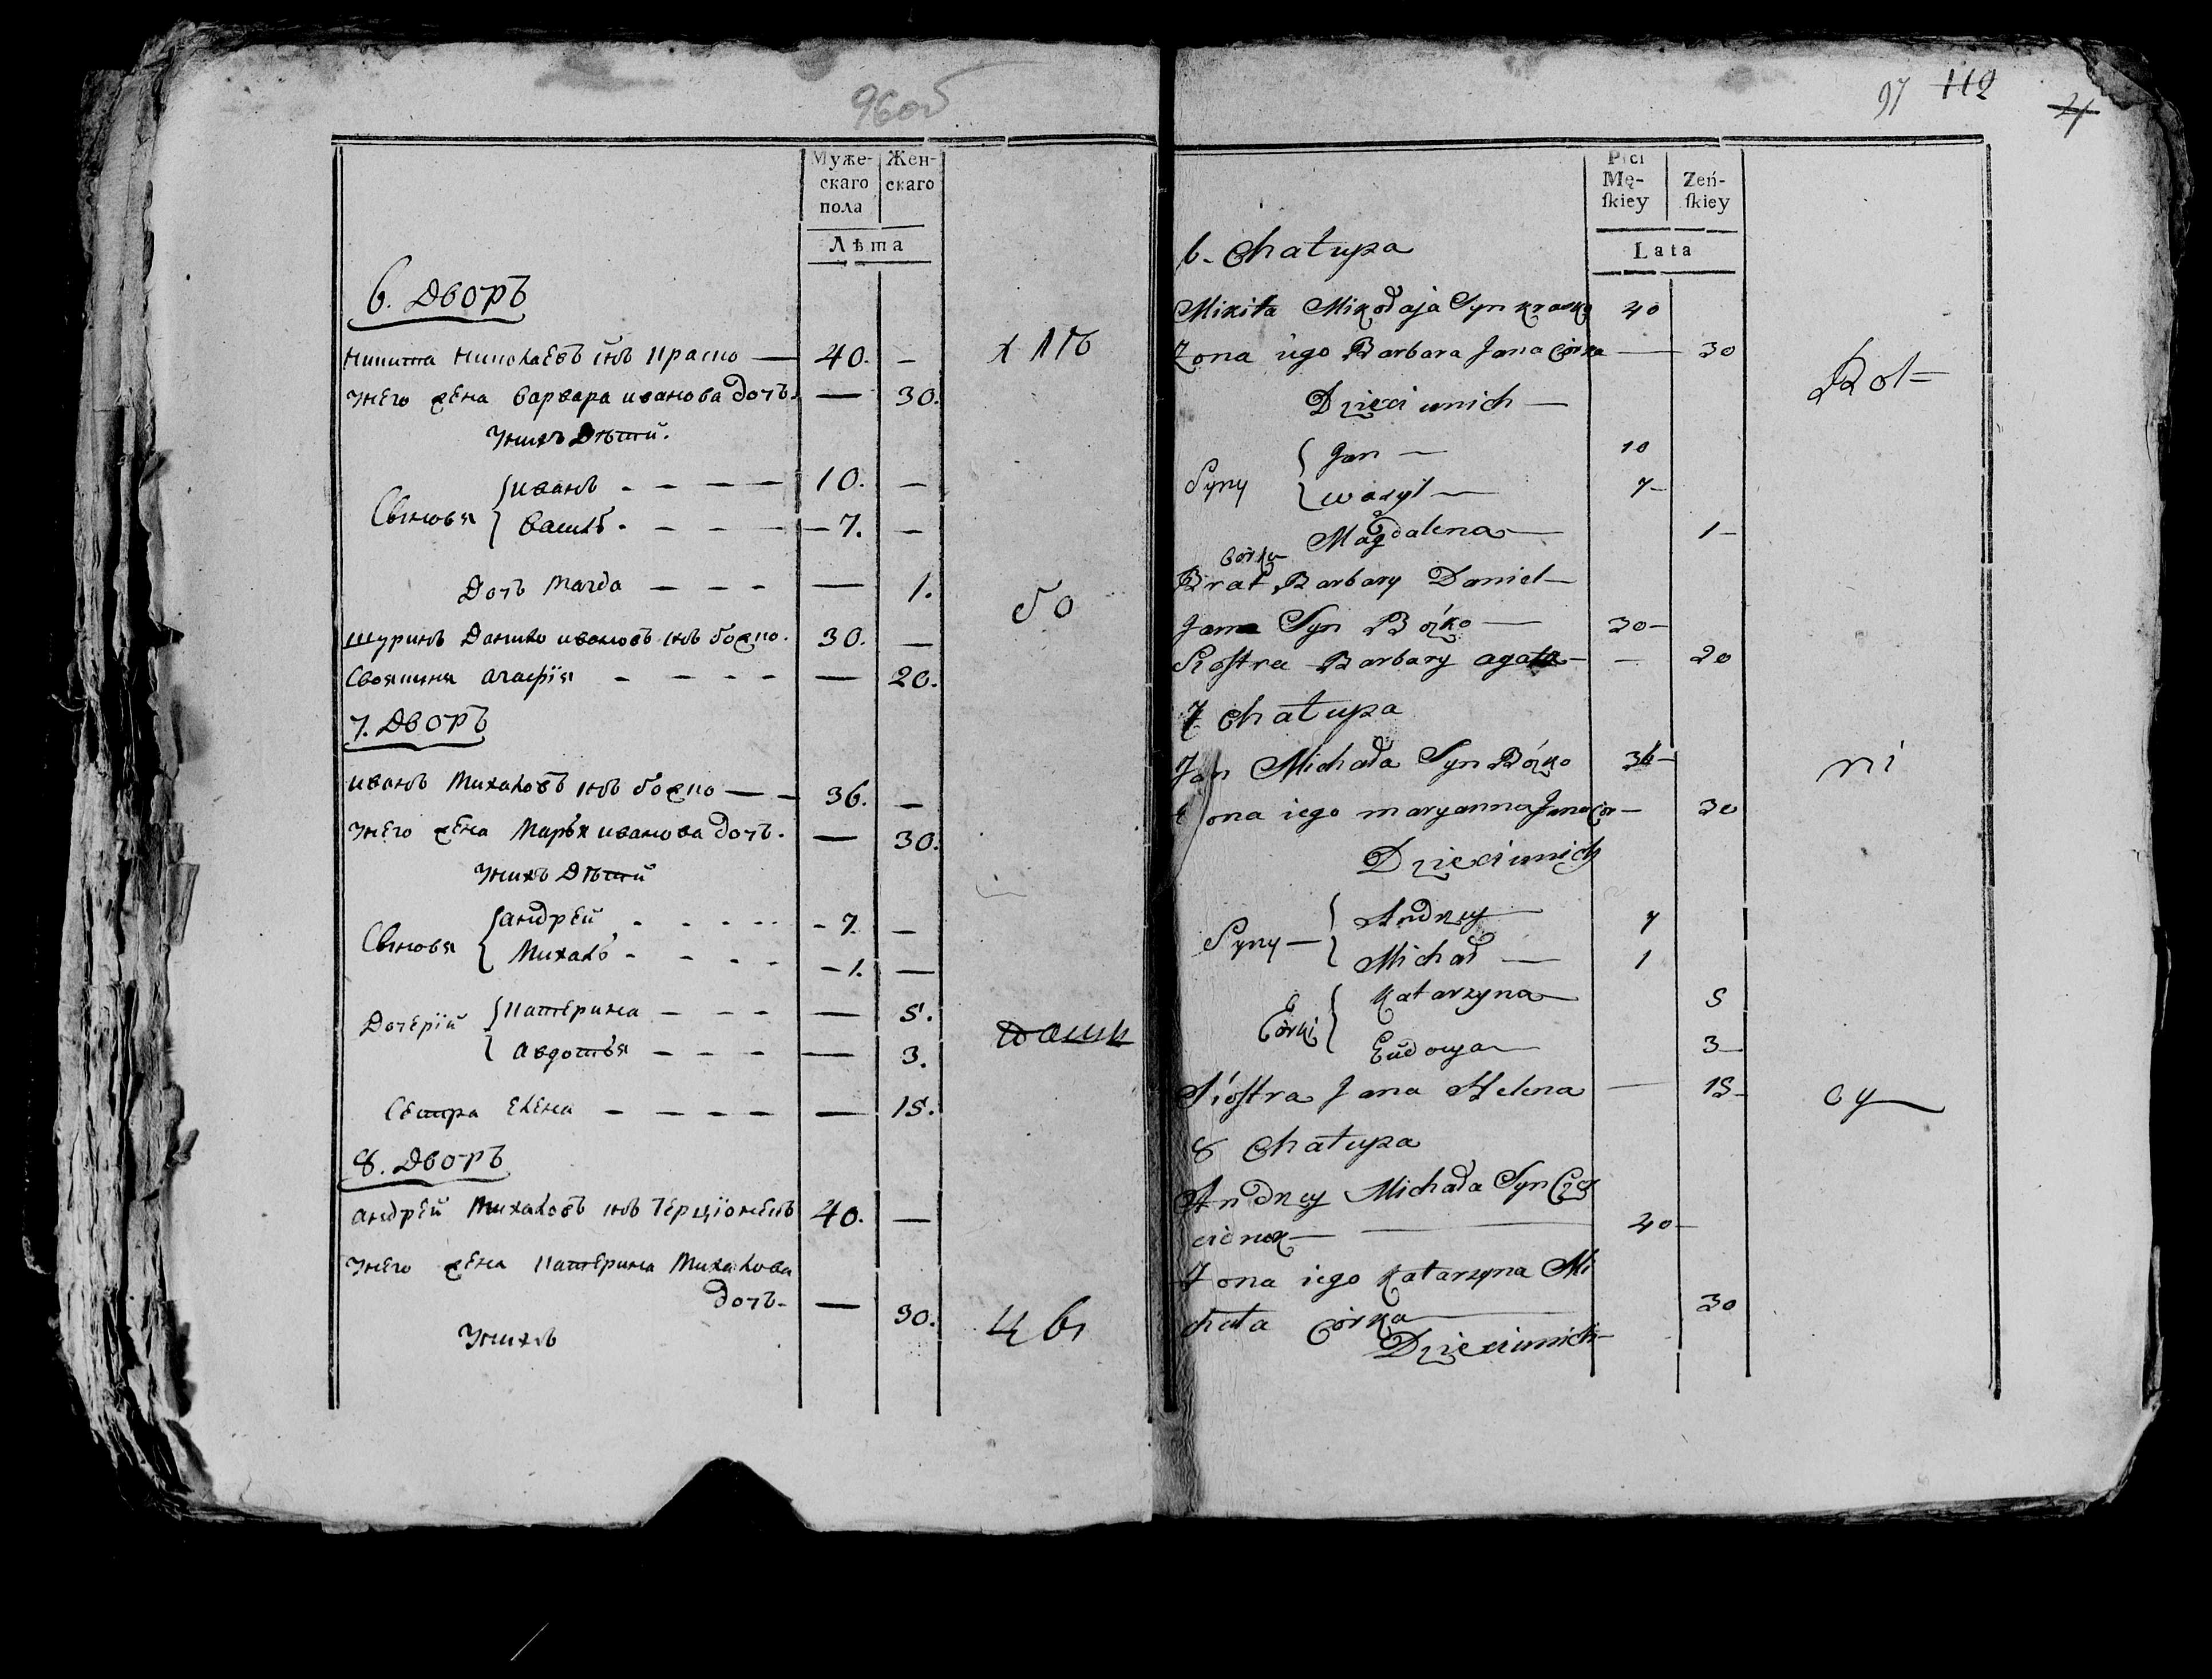 96об
Муже-
скаго
пола
Жен-
скаго
Лѣта
6. Дворъ
Никита Николаевъ снъ Краско — 40. —
Унего жена Варвара иванова дочь. — 30.
Унихъ Дѣтей.
Сыновя
иванъ - - - - 10. —
Василь - - - - 7. —
Дочь Магда - - - — 1.
шуринъ Данило ивановъ снъ божко. 30. —
Своячиня Агафія - - - - — 20.
7. Дворъ
иванъ Михаловъ снъ божко — 36. —
Унего жена Марья иванова дочь. — 30.
Унихъ Дѣтей
Сыновя
андрей - - - - 7. —
Михалъ - - - - 1. —
Дочерій
Катерина - - - — 5.
Авдотья - - - — 3.
Сестра Елена - - - - — 15.
8. Дворъ
Андрей Михаловъ снъ 40. —
Унего жена Катерина Михалова
дочь — 30.
Унихъ
бо
цы
97 112
4
Płci
Mę-
ſkiey
Zeń-
ſkiey
Lata
6. Chałupa
Mikita Mikołaja Syn Krasko 40
Zona iego Barbara Jana Córka — 30
Dzieci unich —
Syny
Jan — 10
Wasyl — 7-
Magdalena — 1-
Córka
Brat Barbary Daniel —
Jana Syn Bożko — 30-
Siostra Barbary agata — — 20
7 Chałupa
Jan Michała Syn Bóżko 36-
Zona iego maryanna Jana Cór — 30
Dzieci unich
Syny —
Andrzey — 7
Michał — 1
Córki
Katarzyna — 5
Eudocya — 3-
Siostra Jana Helena — 15-
8 Chałupa
Andrzey Michała Syn
— 40-
Zona iego Katarzyna Mi
chała Córka — 30
Dzieci unich
Rol=
ni
cy